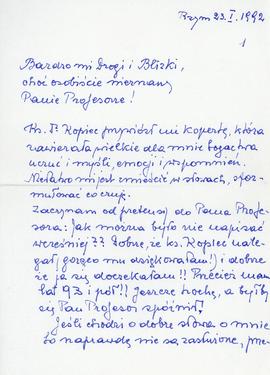 Rzym 23.I.1992
1
Bardzo mi Drogi i Bliski,
choć osobiście nieznany
Panie Profesorze!
Ks. P. Kopiec przywiózł mi kopertę, która
zawierała wielkie dla mnie bogactwa
uczuć i myśli, emocji i wspomnień.
Niełatwo mi jest zmieścić w słowach, sfor-
mułować co czuję.
Zaczynam od pretensji do Pana Profe-
sora: Jak można było nie napisać
wcześniej?? Dobrze, że ks. Kopiec nale-
gał (gorąco mu dziękowałam!) i dobrze
że ja się doczekałam!! Przecież mam
lat 93 i pół!! Jeszcze trochę, a byłby
się Pan Profesor spóźnił.
Jeśli chodzi o dobre słowa o mnie
to naprawdę nie są zasłużone, prze-